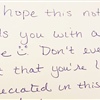 hope this not
ds you with a
e Don't eve
t that you're l
eciated in this